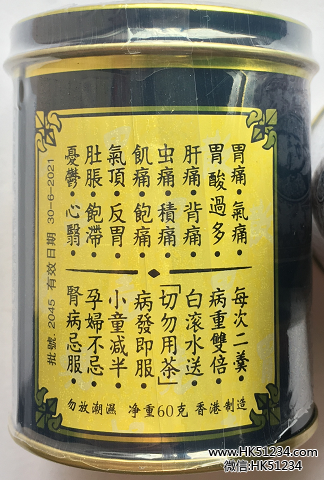 胃痛•氣痛•
胃酸過多•
肝痛•背痛•
虫痛•積痛•
飢痛•飽痛•
氣頂•反胃•
肚脹•飽滯•
憂鬱•心翳•
每次二羹•
病重雙倍•
白滚水送•
「切勿用茶」
病發即服•
小童减半•
孕婦不忌•
腎病忌服•
勿放潮濕 净重60克 香港製造
批號: 2045 有效日期 30-6-2021
www.HK51234.com
微信:HK51234